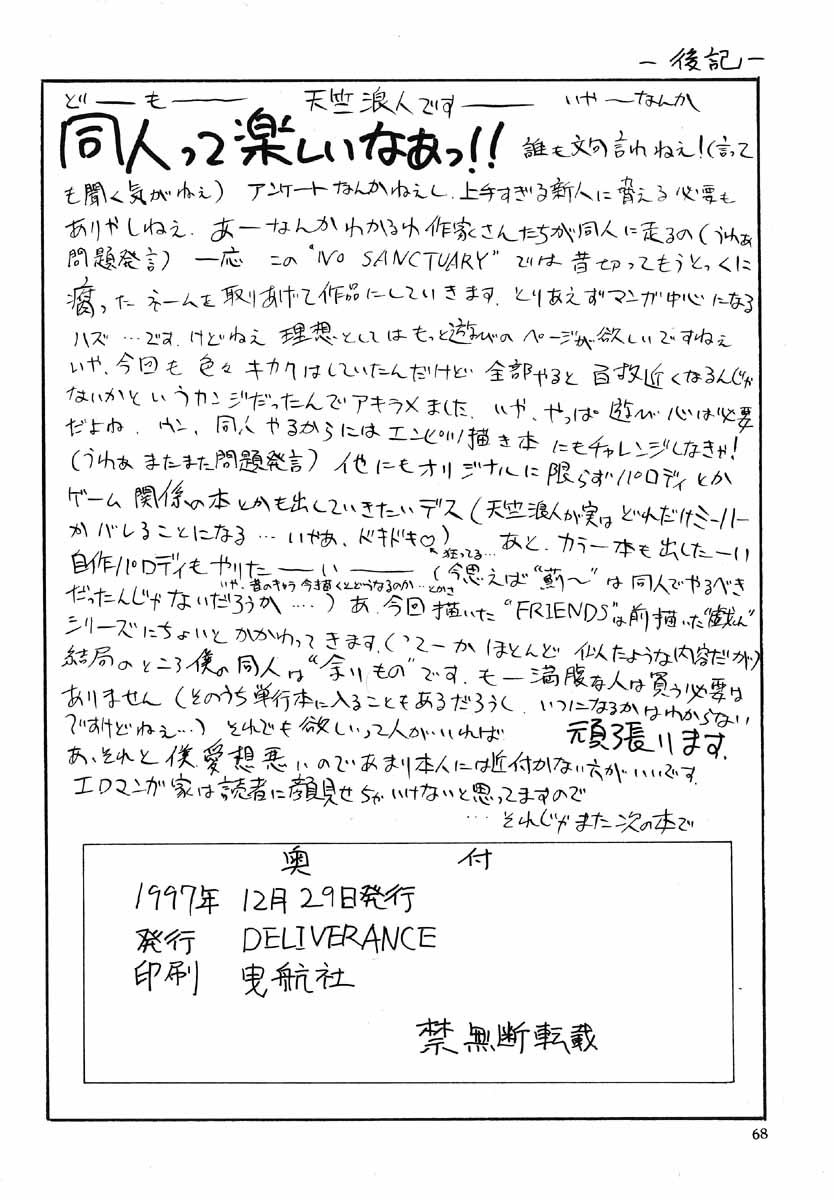 －後記－
ど――も―――　天竺浪人です―――　いや～なんか
同人って楽しいなあっ!! 誰も文句言わねえ!(言って
も聞く気がねえ) アンケートなんかねえし、上手すぎる新人に脅える必要も
ありやしねえ. あーなんかわかるわ作家さんたちが同人に走るの(うわぁ
問題発言) 一応 この"NO SANCTUARY"では昔切ってもうとっくに
腐ったネームを取りあげて作品にしていきます. とりあえずマンガ中心になる
ハズ…です. けどねえ 理想としてはもっと遊びのページが欲しいですねえ
いや、今回も色々キカクはしていたんだけど 全部やると百枚近くなるんじゃ
ないかというカンジだったんでアキラメました. いや、やっぱ遊び心は必要
だよね. ウン. 同人やるからにはエンピツ描き本にもチャレンジしなきゃ!
(うわぁ またまた問題発言) 他にもオリジナルに限らずパロディとか
ゲーム関係の本とかも出していきたいデス (天竺浪人が実はどれだけミーハー
かバレることになる…いやぁ、ドキドキ♡) あと、カラー本も出したーい
狂ってる…
自作パロディもやりた――い――― (今思えば"薊～"は同人でやるべき
いや、昔のきゃら今描くとどうなるのか…とかさ
だったんじゃないだろうか….) あ、今回描いた"FRIENDS"は前描いた"戯れ"
シリーズにちょいとかかわってきます. (つてーかほとんど似たような内容だが)
結局のところ僕の同人は"余りもの"です. もー満腹な人は買う必要は
ありません (そのうち単行本に入ることもあるだろうし、いつになるかはわからない
ですけどねぇ…) それでも欲しいって人がいれば 頑張ります.
あ、それと僕、愛想悪いのであまり本人には近付かない方がいいです.
エロマンガ家は読者に顔見せちゃいけないと思ってますので
…それじゃまた次の本で
奥　付
1997年 12月29日発行
発行 DELIVERANCE
印刷 曳航社
禁無断転載
68